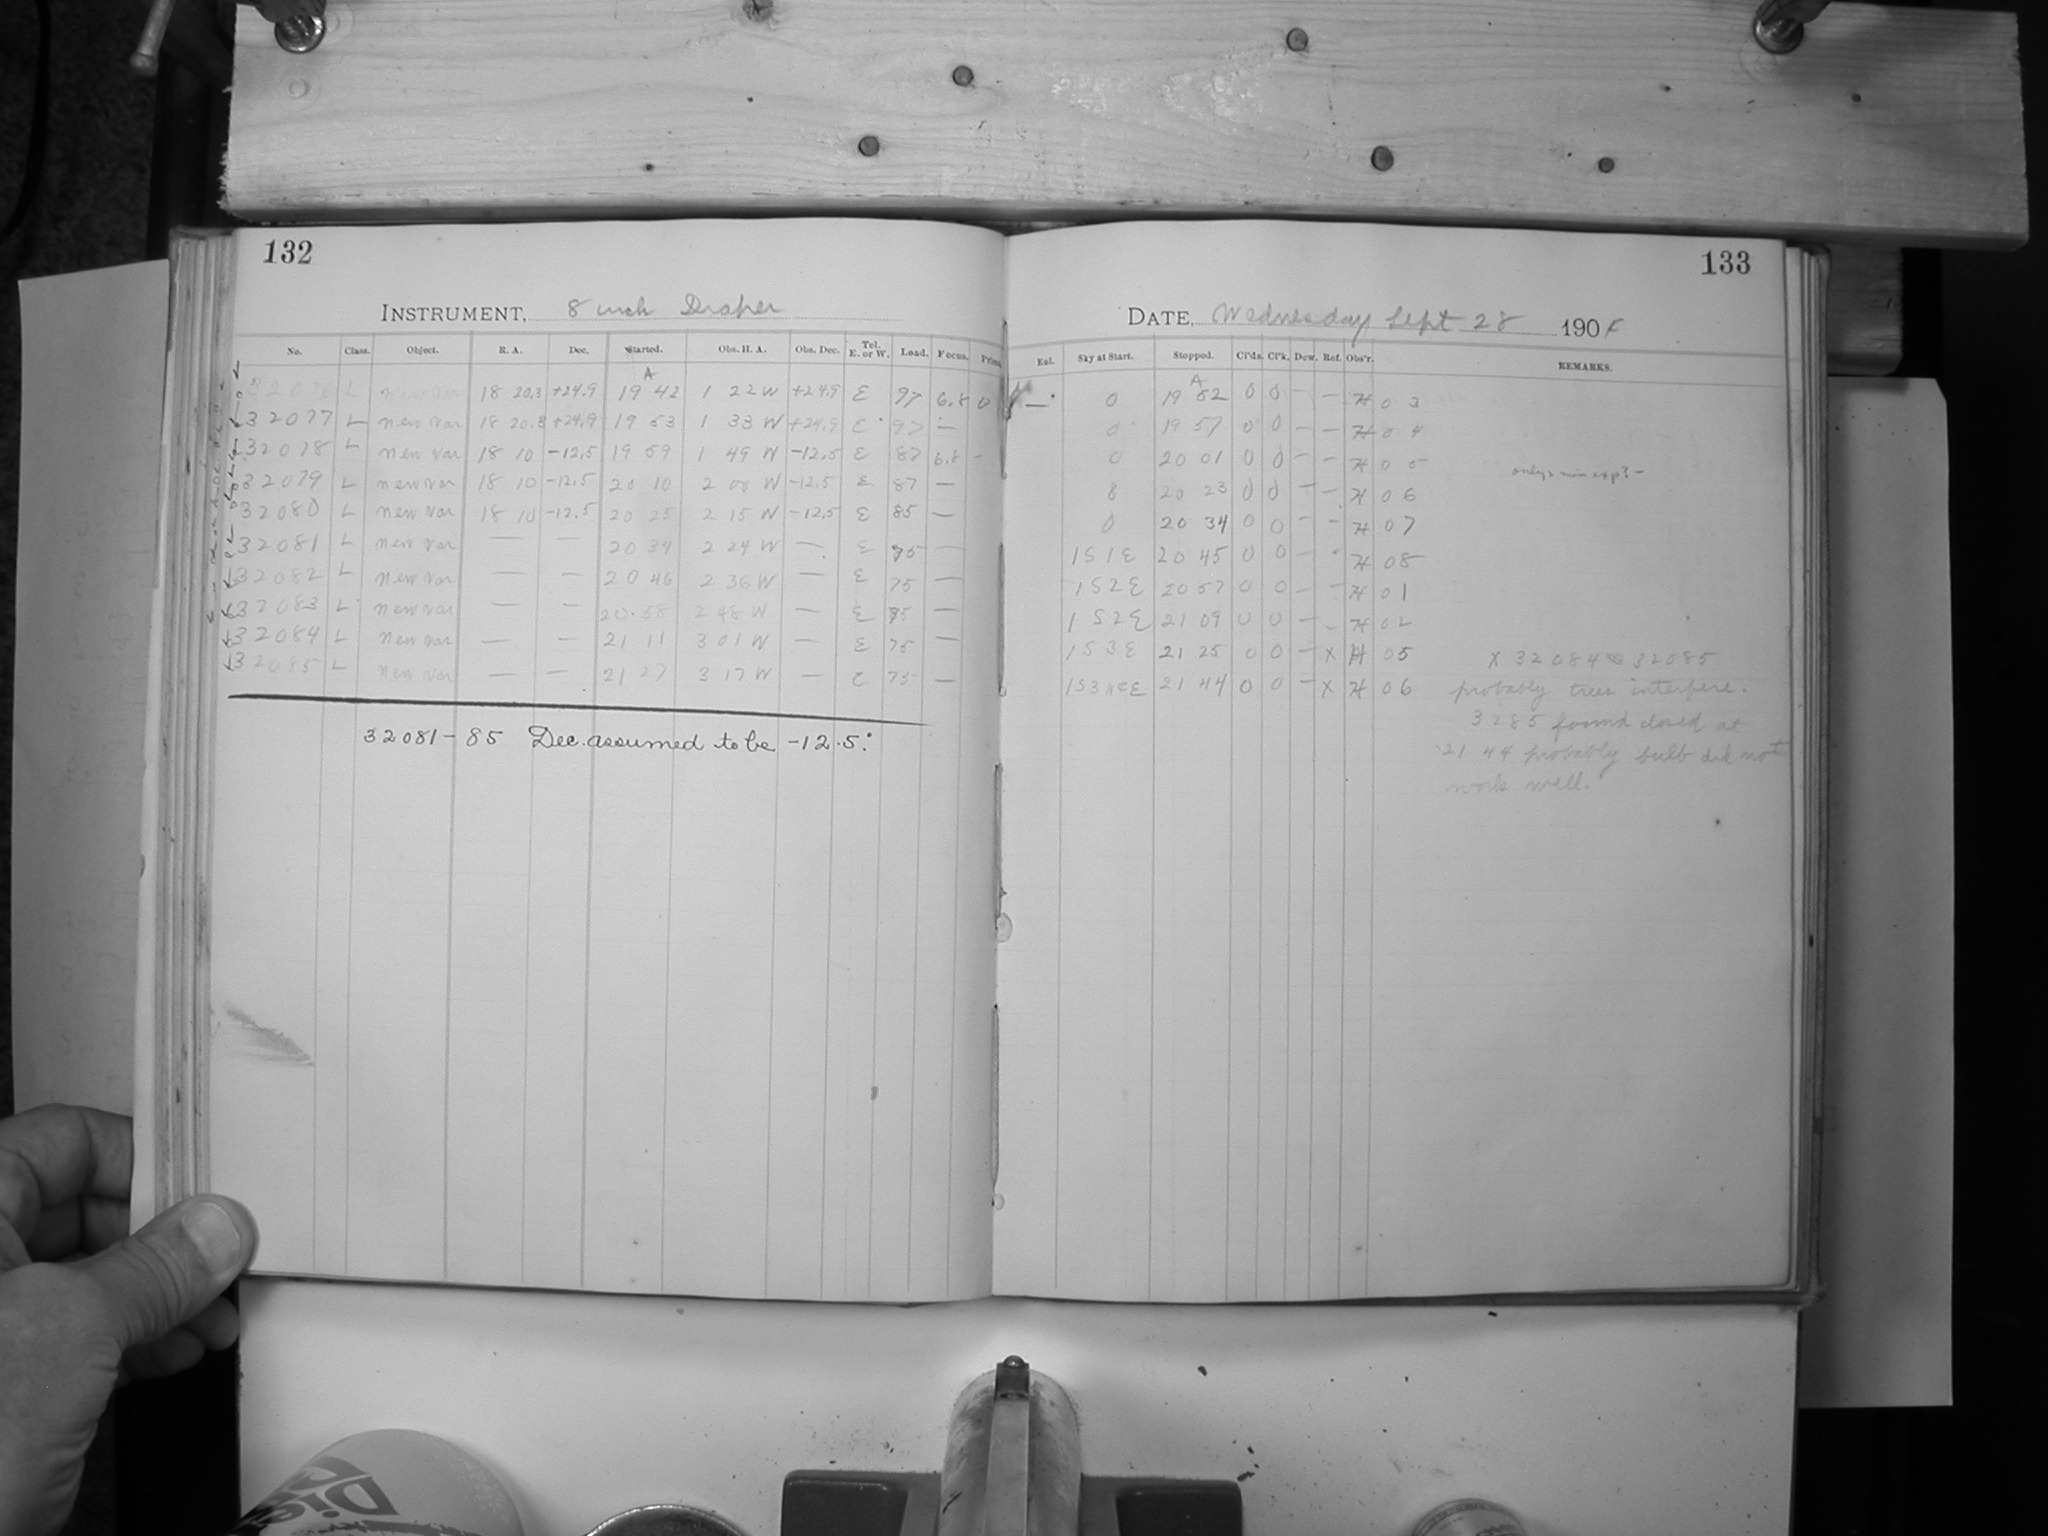 132
INSTRUMENT, 8 inch Draper
No. Class. Object. R. A. Dec. Started. Obs. H. A. Obs. Dec. Tel. E. or W. Load. Focus.
A
32076 L New Var 18 20.3 +24.9 19 42 1 22 W +24.9 E 97 6.8 0
32077 L New Var 18 20.3 +24.9 19 53 1 33 W +24.9 E 97 —
32078 L New Var 18 10 -12.5 19 59 1 49 W -12.5 E 87 6.8 -
32079 L New Var 18 10 -12.5 20 10 2 00 W -12.5 E 87 —
32080 L New Var 18 10 -12.5 20 25 2 15 W -12.5 E 85 —
32081 L New Var — — 20 34 2 24 W — E 75 —
32082 L New Var — — 20 46 2 36 W — E 75 —
32083 L New Var — — 20 58 2 48 W — E 75 —
32084 L New Var — — 21 11 3 01 W — E 75 —
32085 L New Var — — 21 27 3 17 W — E 75 —
32081-85 Dec. assumed to be -12.5:
133
DATE, Wednesday Sept 28 190
Exl. Sky at Start. Stopped. Cl'ds. Cl'k. Dew. Ref. Obs'r. REMARKS.
A
— 0 19 52 0 0 - - H 03
0 19 57 0 0 - - H 04
0 20 01 0 0 - - H 05 only 2 min exp? -
8 20 23 0 0 - - H 06
0 20 34 0 0 - - H 07
1S1E 20 45 0 0 - - H 08
1S2E 20 57 0 0 - - H 01
1S2E 21 09 0 0 - - H 02
1S3E 21 25 0 0 - X H 05 X 32084 & 32085
1S3NCE 21 44 0 0 - X H 06 probably trees interfere.
3285 found closed at
21 44 probably bulb did not
work well.
Die